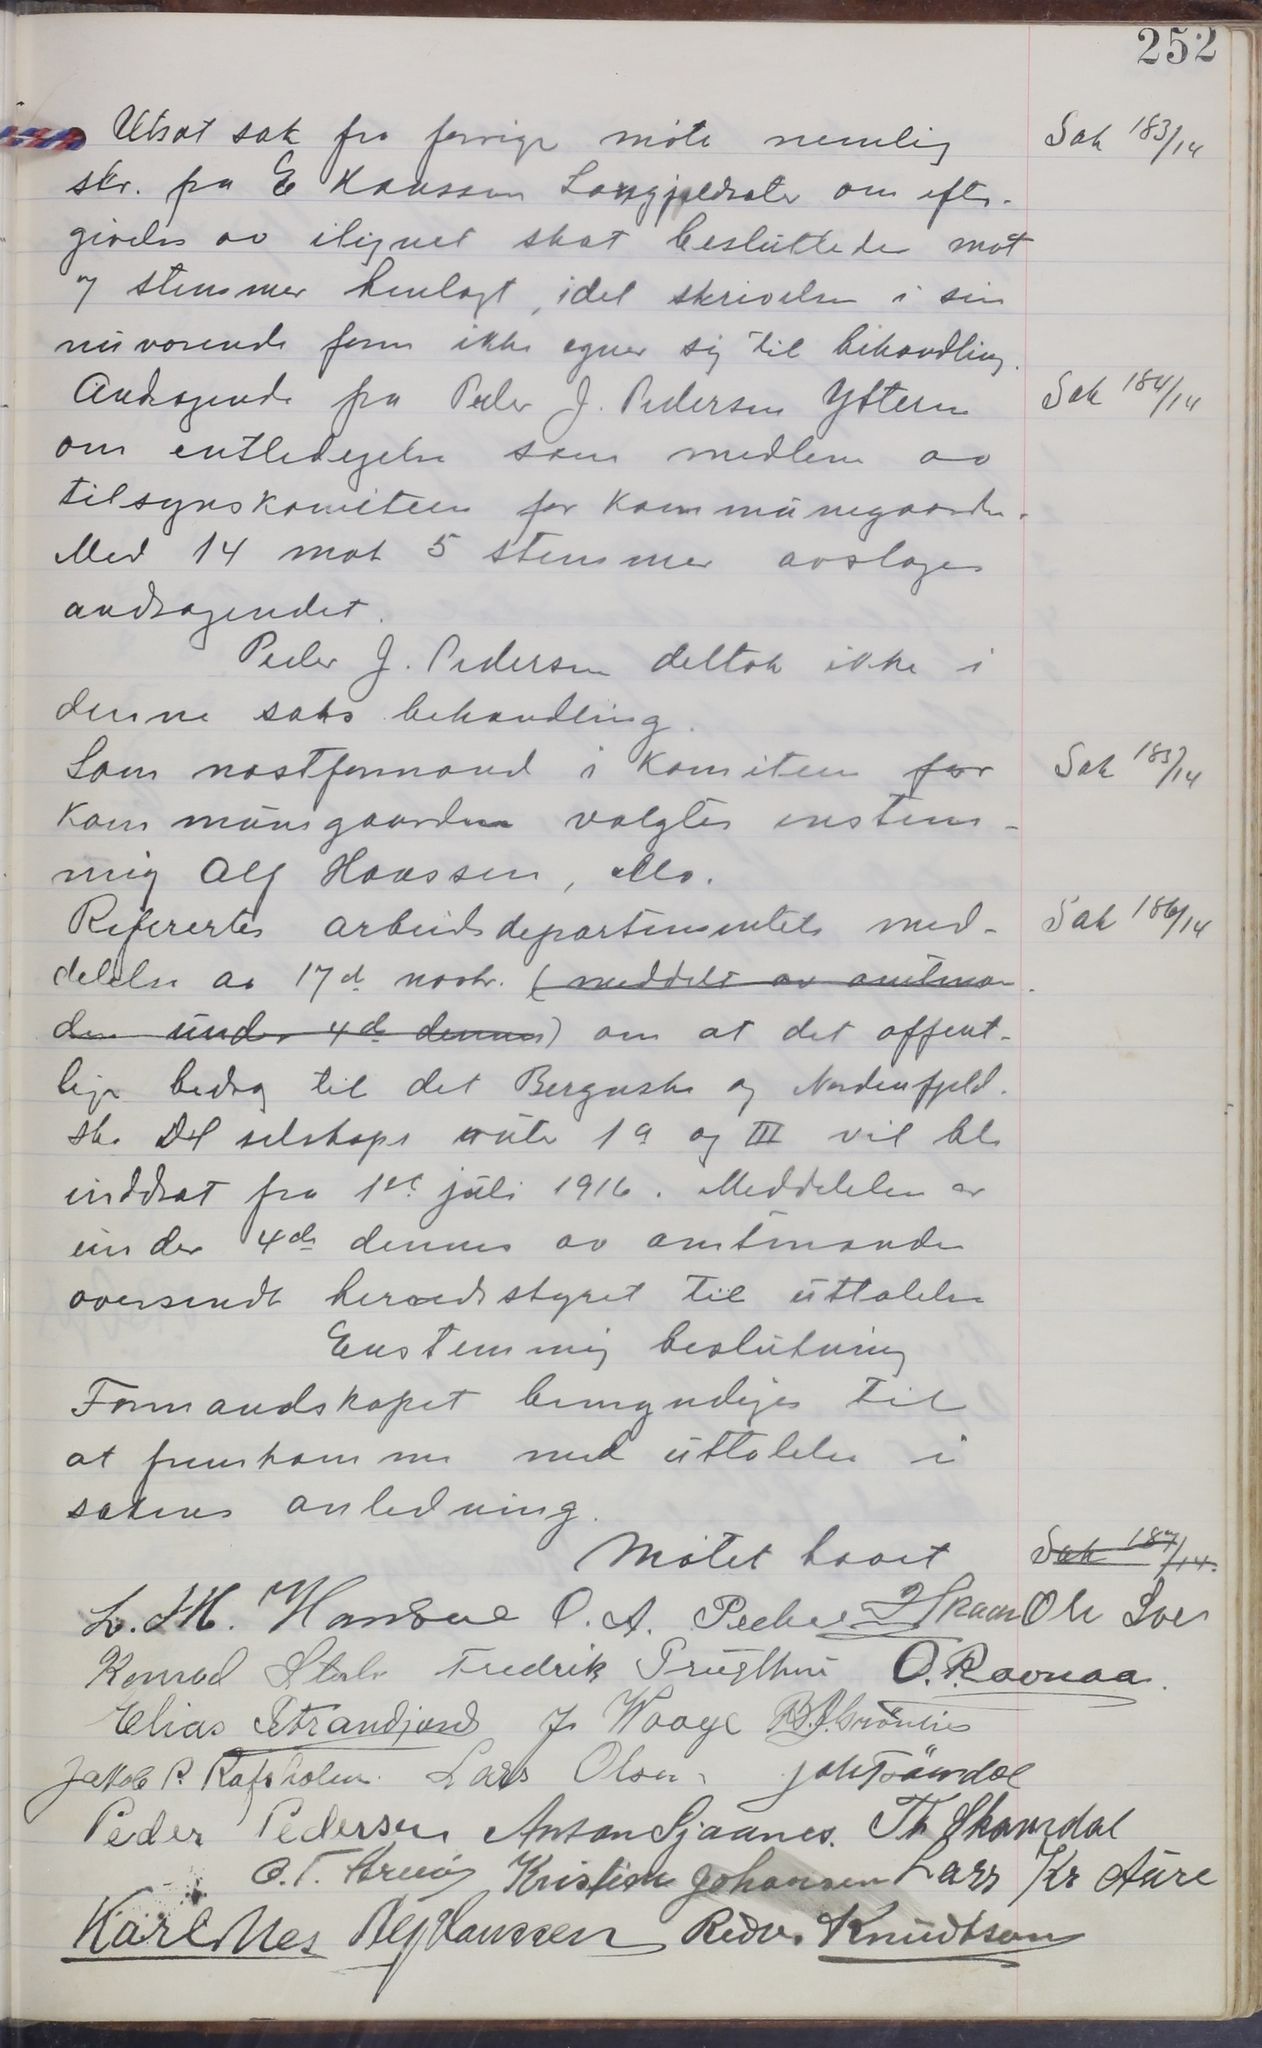 252
Utsat sak fra forrige møte nemlig Sak 183/14
skr. fra E Hanssen Langjeldsæter om efter-
givelse av ilignet skat besluttedes mot
7 stemmer henlagt, idet skrivelsen i sin
nuværende form ikke egner sig til behandling.
Andragende fra Peder J. Pedersen Ytteren Sak 184/14
om entledigelse som medlem av
tilsynskomiteen for kommunegaarden.
Med 14 mot 5 stemmer avslages
andragendet.
Peder J. Pedersen deltok ikke i
denne saks behandling.
Som næstformand i komiteen for Sak 185/14
kommunegaarden valgtes enstem-
mig Alf Hanssen, Mo.
Refertes arbeidsdepartementets med- Sak 186/14
delelse av 17de novbr. (meddelt av amtman-
den under 4de dennes) om at det offent-
lige bidrag til det Bergenske og Nordenfjeld-
ske D/S selskaps ruter 1a og III vil bli
inddrat fra 1ste juli 1916. Meddelelsen er
under 4de dennes av amtmanden
oversendt herredsstyret til uttalelse
Enstemmig beslutning
Formandskapet bemyndiges til
at fremkomme med uttalelse i
sakens anledning.
Møtet hævet Sak 187/14.
L. J. H. Hansen O. A. Skaar Ole
Konrad Fredrik O. Ravnaa.
Elias Strandjord J. Waage
Jakob P. Lars Olsen
Peder Pedersen Anton Sjaanes. Th Skamdal
O. T. Kristian Johansen Lars Kr Aure
Karl Nes Alf Hanssen Redv. Knudtson